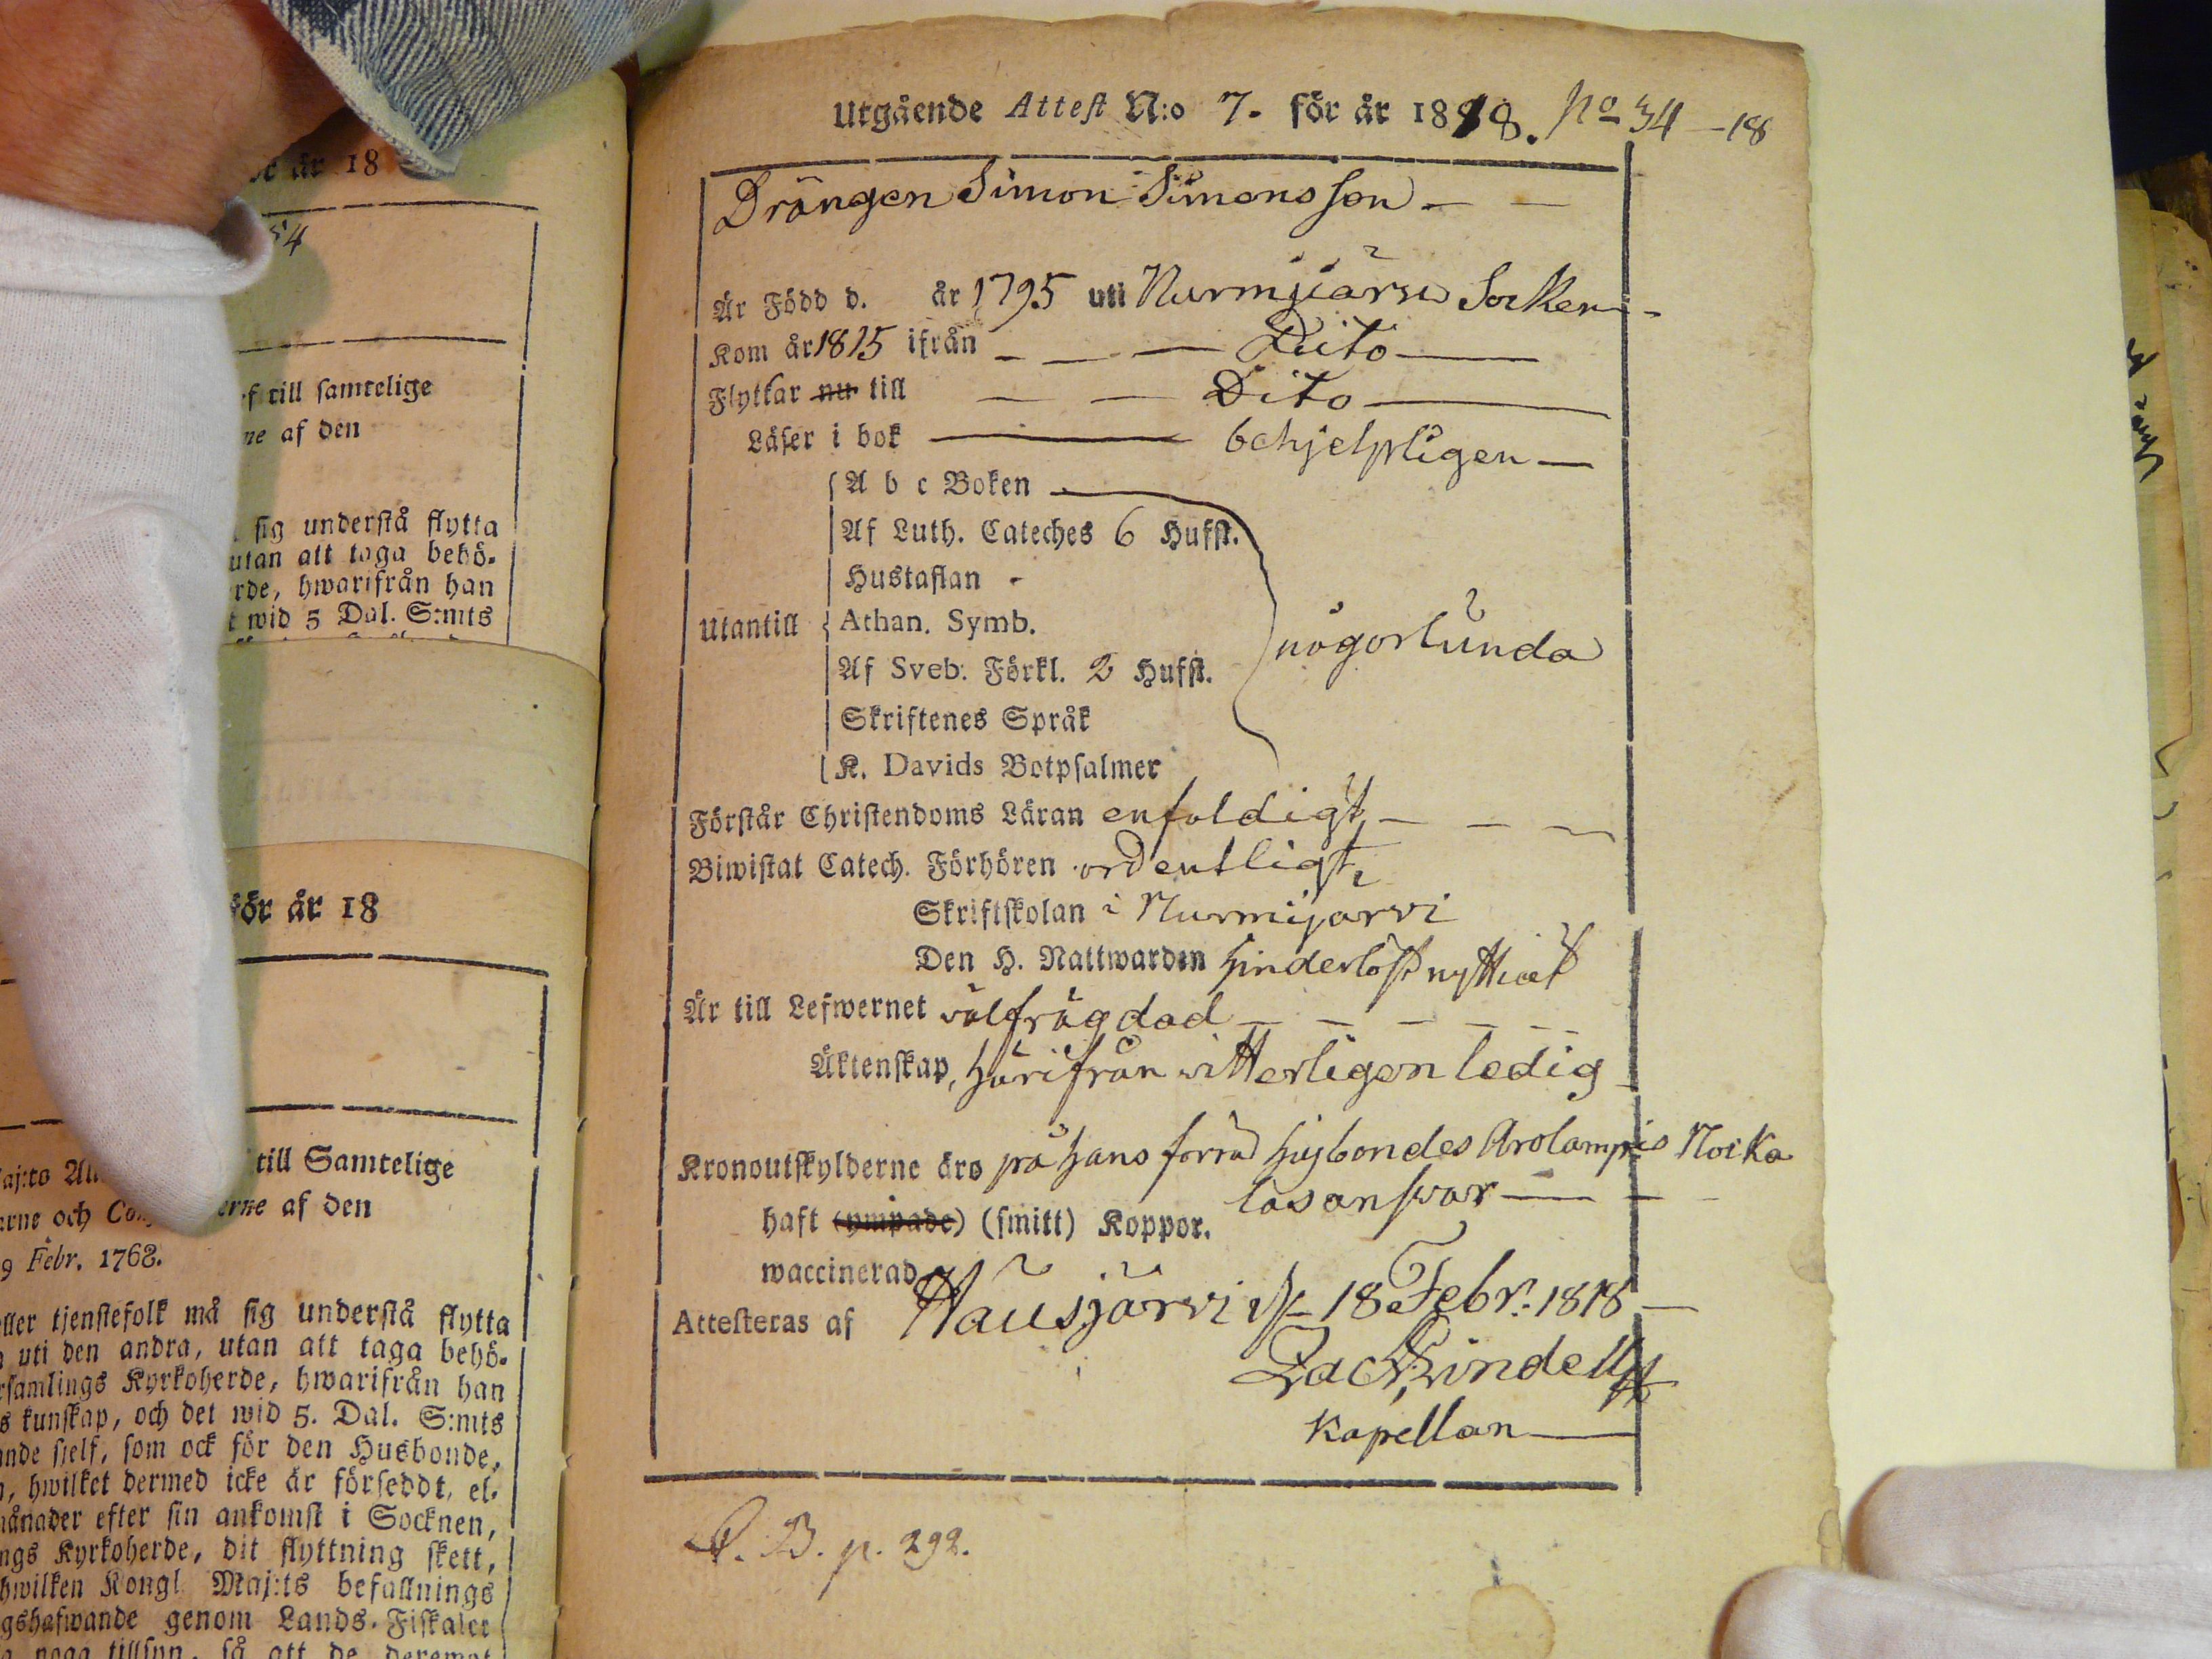 r år 18
54
f till samtelige
ne af den
sig understå flytta
utan att taga behö-
rde, hwarifrån han
t wid 5 Dal. S:mts
för år 18
till Samtelige
arne och Con erne af den
9 Febr. 1768.
eller tjenstefolk må sig understå flytta
uti den andra, utan att taga behö-
rsamlings Kyrkoherde, hwarifrån han
s kunskap, och det wid 5. Dal. S:mts
ande sjelf, som ock för den Husbonde,
n, hwilket dermed icke är förseddt, el-
månader efter sin ankomst i Socknen,
ngs Kyrkoherde, dit flyttning skett,
hwilken Kongl. Maj:ts befallnings
gshafwande genom Lands-Fiskaler
noga tillsyn, så att de deremot
Utgående Attest N:o 7. för år 1818. No 34 -18
Drängen Simon Simonsson
Är Född d. år 1795 uti Nurmijärvi Socken
Kom år 1815 ifrån Dito
Flyttar nu till Dito
Läser i bok behjelpligen
A b c Boken
Af Luth. Cateches 6 Hufst.
Hustaflan
Utantill Athan. Symb. någorlunda
Af Sveb. Förkl. 2 Hufst.
Skriftenes Språk
K. Davids Botpsalmer
Förstår Christendoms Läran enfaldigt
Biwistat Catech. Förhören ordentligt,
Skriftskolan i Nurmijarvi
Den H. Nattwarden hinderlöst nyttiat
Är till Lefwernet välfrägdad
Äktenskap, härifrån witterligen ledig
Kronoutskylderne äro på hans förra husbondes Arolampis Noika
haft (ympade) (smitt) Koppor. las answar
waccinerad
Attesteras af Hausjärvi d. 18 Febr. 1818
Zach Lindell
Kapellan
C. B. p. 292.